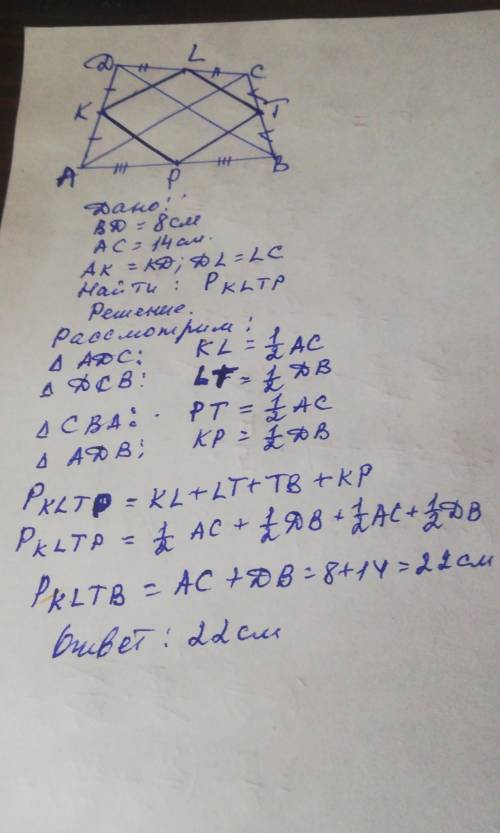 D L C
K T
A P B
Дано:
BD = 8см
AC = 14см.
AK = KD; DL = LC
Найти: P KLTP
Решение.
Рассмотрим:
Δ ADC: KL = 1/2 AC
Δ DCB: LT = 1/2 DB
Δ CBA: PT = 1/2 AC
Δ ADB; KP = 1/2 DB
P KLTP = KL + LT + TB + KP
P KLTP = 1/2 AC + 1/2 DB + 1/2 AC + 1/2 DB
P KLTB = AC + DB = 8 + 14 = 22 см
Ответ: 22 см